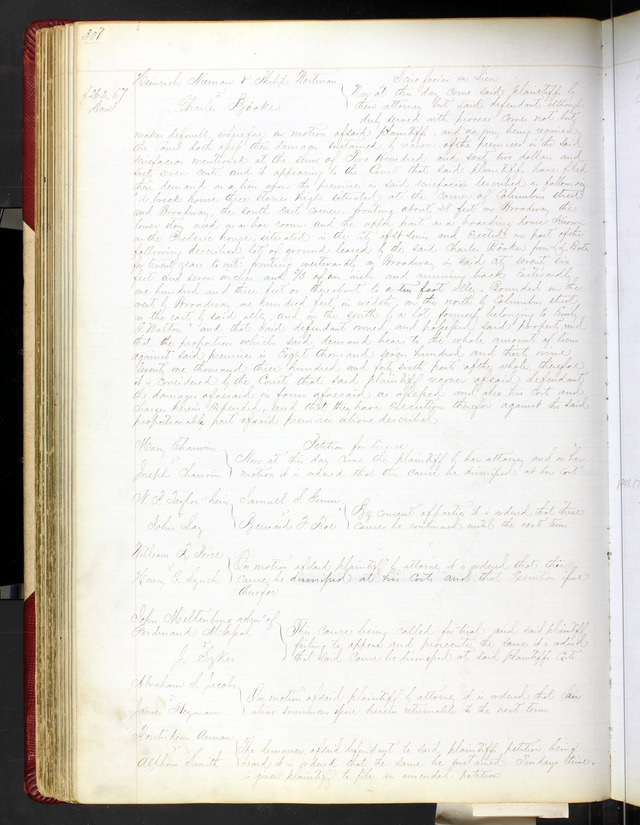 307
Heinrich Nieman & Philip Wortman
Scire facias on Lien
$262.67
Charles Bööke
Now at this day come said plaintiffs by
their attorney but said defendant although
duly served with process comes not but
makes default, wherefore on motion of said plaintiffs and no jury being required
the Court doth assess their damage sustained by reason of the premises in the said
scirefacias mentioned at the sum of Two hundred and sixty two dollars and
sixty seven cents and it appearing to the Court that said plaintiffs have filed
their demand as a lien upon the premises in said scirefacias described as follows
brick house three stories high situated at the corner of Columbus street
and Broadway, the south east corner fronting about feet on Broadway the
lower story used as a bar room and the upper part as a boarding house known
as the house, situated in the city of St Louis and erected on part of the
following described lot of ground leased by the said Charles Bööke from
for twenty years to wit: fronting westwardly on Broadway in said city seventy six
feet and seven inches and of an inch and running back Eastwardly
one hundred and three feet or thereabout to a ten foot alley, Bounded on the
west by Broadway one hundred feet in width, on the north by Columbus street,
on the east by said alley and on the south by a lot formerly belonging to
Walton" and that said defendant owned and possessed said property, and
that the proportion which said demand bears to the whole amount of liens
against said premises is Eight thousand seven hundred and thirty nine
Twenty one thousand three hundred and forty sixth part of the whole, therefore
it is considered by the Court that said plaintiffs recover of said defendant
the damages aforesaid in form aforesaid as assessed and also his costs and
charges herein expended, and that they have execution therefor against the said
proportionable part of said premises above described.
Mary Chauvin
Petition for divorce
Joseph Chauvin
Now at this day comes the plaintiff by her attorney and on her
motion it is ordered that this cause be dismissed at her cost
N. J. Taylor
Samuel S.
John Lay
Bernard F. Rae
By consent of parties it is ordered that these
causes be continued until the next term
William R. Price
Henry G. Lynch
On motion of said plaintiff by attorney it is ordered that this
cause be dismissed at his costs and that Execution issue
therefor
John Meltenburg admr of
Ferdinand
J. Syker
This cause being called for trial and said plaintiff
failing to appear and prosecute the same it is ordered
that said cause be dismissed at said plaintiffs cost
Abraham S. Jacobs
Heyman
On motion of said plaintiff by attorney it is ordered that an
alias summons issue herein returnable to the next term
Alphons Smith
The demurrer of said defendant to said plaintiffs petition being
heard it is ordered that the same be sustained Ten days time
is given plaintiff to file an amended petition